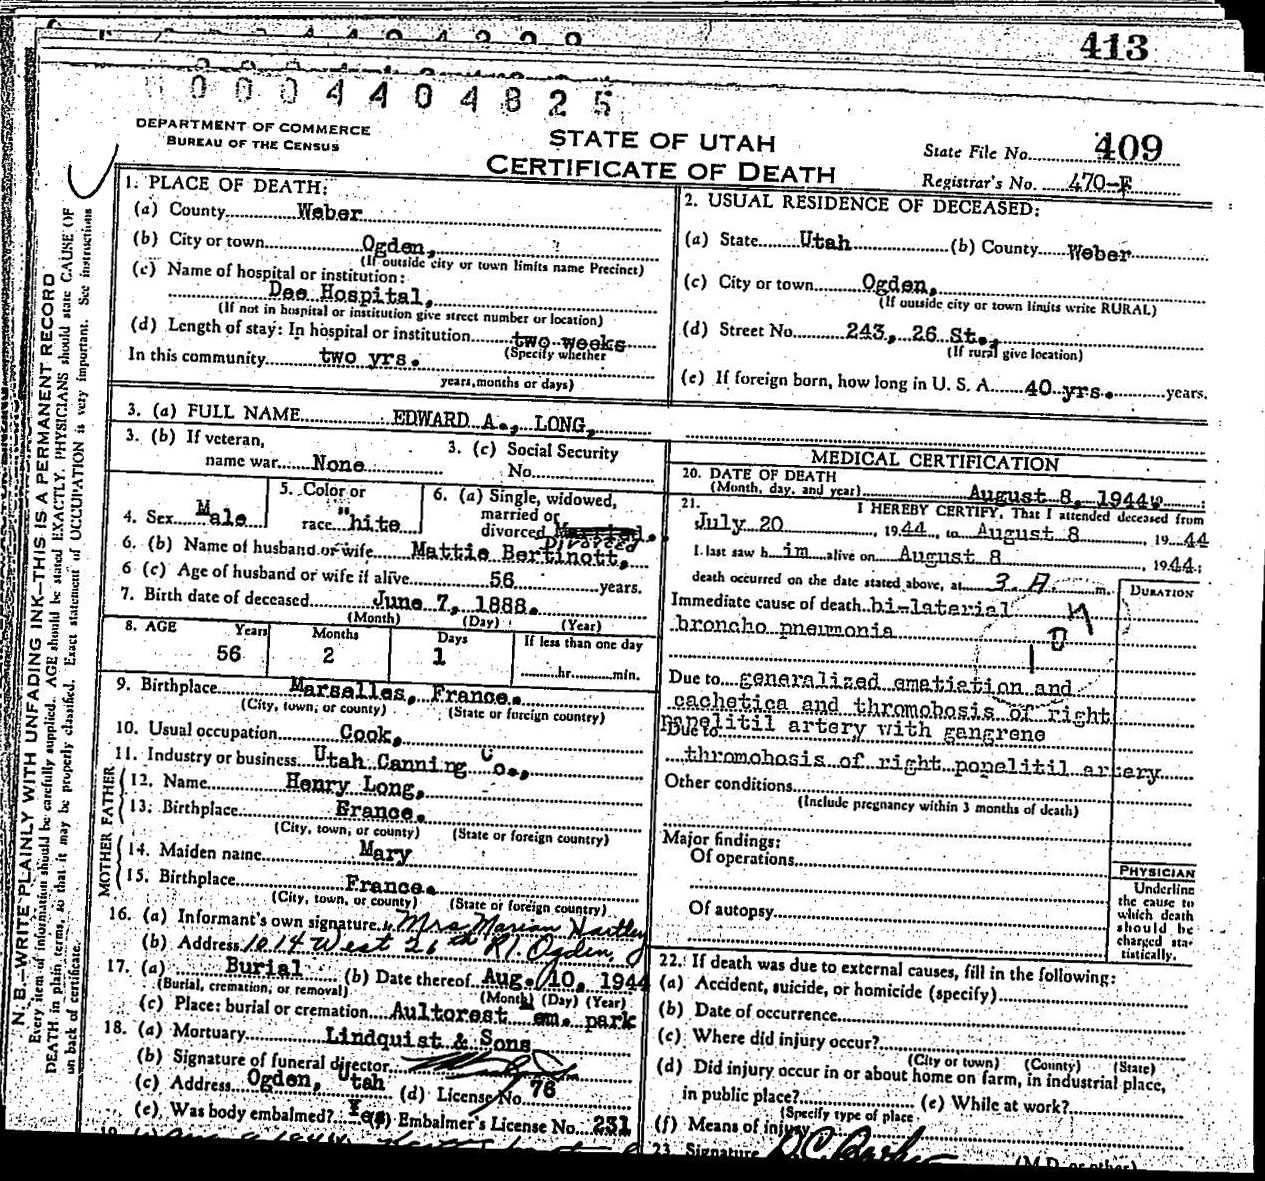 413
0 0 0 4 4 0 4 8 2 5
DEPARTMENT OF COMMERCE
BUREAU OF THE CENSUS
STATE OF UTAH
CERTIFICATE OF DEATH
State File No. 409
Registrar's No. 470-F
N. B.—WRITE PLAINLY WITH UNFADING INK—THIS IS A PERMANENT RECORD
Every item of information should be carefully supplied. AGE should be stated EXACTLY. PHYSICIANS should state CAUSE OF
DEATH in plain terms, so that it may be properly classified. Exact statement of OCCUPATION is very important. See instructions
on back of certificate.
1. PLACE OF DEATH:
(a) County Weber
(b) City or town Ogden,
(If outside city or town limits name Precinct)
(c) Name of hospital or institution:
Dee Hospital,
(If not in hospital or institution give street number or location)
(d) Length of stay: In hospital or institution two weeks
(Specify whether
In this community two yrs.
years, months or days)
2. USUAL RESIDENCE OF DECEASED:
(a) State Utah (b) County Weber
(c) City or town Ogden,
(If outside city or town limits write RURAL)
(d) Street No. 243, 26 St.,
(If rural give location)
(e) If foreign born, how long in U. S. A. 40 yrs. years.
3. (a) FULL NAME EDWARD A., LONG,
3. (b) If veteran,
name war None
3. (c) Social Security
No.
4. Sex Male
5. Color or
race "hite
6. (a) Single, widowed,
married or
divorced Married.
Divorced
6. (b) Name of husband or wife Mattie Bertinott,
6 (c) Age of husband or wife if alive 56 years.
7. Birth date of deceased June 7, 1888.
(Month) (Day) (Year)
8. AGE Years Months Days If less than one day
56 2 1 hr. min.
9. Birthplace Marsalles, France.
(City, town, or county) (State or foreign country)
10. Usual occupation Cook,
11. Industry or business Utah Canning Co.,
FATHER
12. Name Henry Long,
13. Birthplace France.
(City, town, or county) (State or foreign country)
MOTHER
14. Maiden name Mary
15. Birthplace France.
(City, town, or county) (State or foreign country)
16. (a) Informant's own signature Mrs Marian Hartley
(b) Address 1014 West 26th R1. Ogden, U
17. (a) Burial (b) Date thereof Aug. 10, 1944
(Burial, cremation, or removal) (Month) (Day) (Year)
(c) Place: burial or cremation Aultorest em. park
18. (a) Mortuary Lindquist & Sons
(b) Signature of funeral director
(c) Address Ogden, Utah (d) License No. 76
(e) Was body embalmed? Yes (f) Embalmer's License No. 231
MEDICAL CERTIFICATION
20. DATE OF DEATH
(Month, day, and year) August 8, 1944
21. I HEREBY CERTIFY, That I attended deceased from
July 20, 1944, to August 8, 1944
I last saw him alive on August 8, 1944;
death occurred on the date stated above, at 3. A. m.
DURATION
Immediate cause of death bi-laterial
broncho pneumonia
Due to generalized ematiation and
cachetica and thrombosis of right
popelitil artery with gangrene
Due to
thrombosis of right popelitil artery
Other conditions
(Include pregnancy within 3 months of death)
Major findings:
Of operations
Of autopsy
PHYSICIAN
Underline
the cause to
which death
should be
charged sta-
tistically.
22. If death was due to external causes, fill in the following:
(a) Accident, suicide, or homicide (specify)
(b) Date of occurrence
(c) Where did injury occur?
(City or town) (County) (State)
(d) Did injury occur in or about home on farm, in industrial place,
in public place? (e) While at work?
(Specify type of place
(f) Means of injury
23. Signature
(M.D. or other)